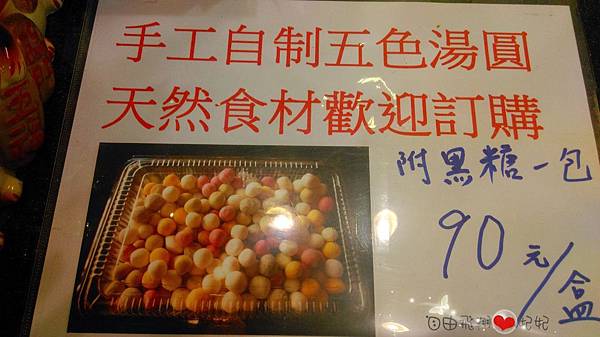 手工自制五色湯圓
天然食材歡迎訂購
附黑糖一包
90元/盒
自由飛翔❤妃妃